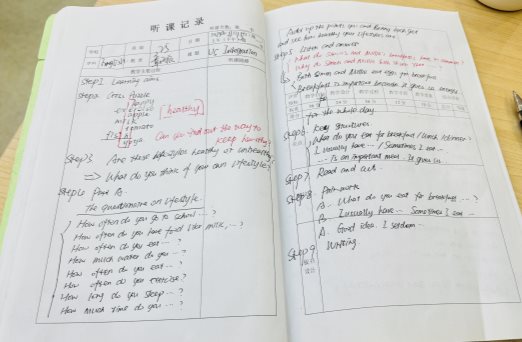 听课记录
班级
7.5
日期
学科
English
教师
课题
U5 Integration
教学主要过程
Step1 Learning aims
Step2 Cross Puzzle
happy
exercise
apple
milk
tomato
fish
healthy
Can you find out the way to
keep healthy?
Step3 Are these lifestyles healthy or unhealthy
⇒ What do you think of your own lifestyle?
Part A.
The questionnaire on lifestyle.
How often do you go to school ... ?
How often do you have food like milk, ... ?
How often do you eat ... ?
How much water do you ... ?
How often do you eat ... ?
How often do you exercise?
How long do you sleep ... ?
How much time do you ... ?
Add up the points you and Benny each get
and see how healthy your lifestyles are.
Step5 Listen and answer
What do Simon and Millie have for breakfast
Why do Simon and Millie
Both Simon and Millie eat eggs for breakfast
Breakfast is important because it gives us energy
for the whole day
Step6 Key structures.
What do you eat for breakfast / lunch / dinner
I usually have ... / Sometimes I eat ...
... is an important meal. It gives us ...
Step7. Read and act.
Step8. Pair-work
A. What do you eat for breakfast ... ?
B. I usually have ... Sometimes I eat ...
A. Good idea. I seldom ...
Step9 Writing